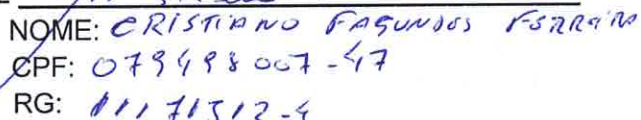 NOME: CRISTIANO FAGUNDES FERREIRA
CPF: 079498007-47
RG: 11171312-4